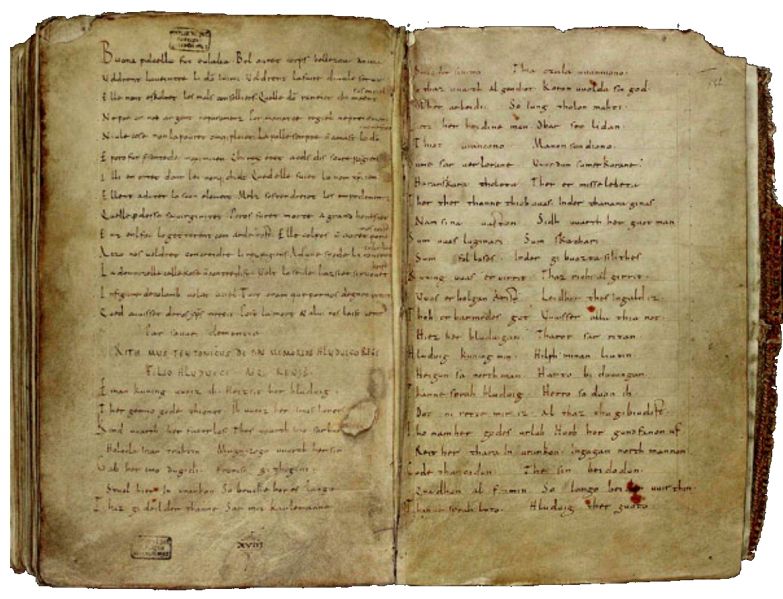 Buona pulcella fut eulalia. Bel auret corps bellezour anima
Voldrent la ueintre li dō inimi. Voldrent la faire diaule seruir
Elle nont eskoltet les mals conselliers. Quelle dō raneiet chi maent
sus en ciel
Ne por or ned argent ne paramenz. Por manatce regiel ne preiement
Niule cose non la pouret omque pleier. La polle sempre n amast lo dō
E poro fut presentede maximiien. Chi rex eret a cels dis soure pagiens
Il li enortet dont lei nonq chielt. Qued elle fuiet lo nom xp̄iien
Ellent adunet lo suon element. Melz sostendreiet les empedementz
Quelle perdesse sa uirginitet. Poros furet morte a grand honestet
Enz enl fou la getterent com arde tost. Elle colpes n auret poro
nos coist
A czo nos uoldret concreidre li rex pagiens. Ad une spede li roueret
La domnizelle celle kose n contredist. Volt lo seule lazsier si ruouet
In figure de colomb uolat a ciel. Tuit oram que por nos degnet
Qued auuisset de nos xp̄s mercit. Post la mort & a lui nos laist uenir
Par souue clementia
RITHMUS TEUTONICUS DE PIAE MEMORIAE HLUDUICO REGE
FILIO HLUDUICI AEQ; REGIS
Einan kuning uueiz ih. Heizsit her hluduig
Ther gerno gode thionot. Ih uueiz her imos lonot
Kind uuarth her faterlos. Thes uuarth imo sar buoz
Holoda inan truhtin. Magaczogo uuarth her sin
Gab her imo dugidi. Fronisc githigini
Stual hier in urankon. So bruche her es lango
Thaz gideilder thanne. Sar mit karlemanne
XVIII
142
Bruoder sinemo. Thia czala uuunniono
So thaz uuarth al gendiot. Koron uuolda sin god
Ob her arbeidi. So iung tholon mahti
Lietz her heidine man. Obar seo lidan
Thiot urancono. Manon sundiono
Sume sar uerlorane. Uuurdun sumerkorane
Haranskara tholota. Ther er misselebeta
Ther ther thanne thiob uuas. Inder thanana ginas
Nam sina uaston. Sidh uuarth her guot man
Sum uuas luginari. Sum skachari
Sum fol loses. Inder gibuozta sih thes
Kuning uuas eruirrit. Thaz richi al girrit
Uuas erbolgan krist. Leidhor thes ingald iz
Thoh erbarmedes got. Uuisser alla thia not
Hiez her hluduigan. Tharot sar ritan
Hluduig kuning min. Hilph minan liutin
Heigun sa northman. Harto biduuungan
Thanne sprah hluduig. Herro so duon ih
Dot ni rette mir iz. Al thaz thu gibiudist
Tho nam her godes urlub. Huob her gundfanon uf
Reit her thara in urankon. Ingagan northmannon
Gode thancodun. The sin beidodun
Quadhun al fromin. So lango beidon uuir thin
Thanne sprah luto. Hluduig ther guoto